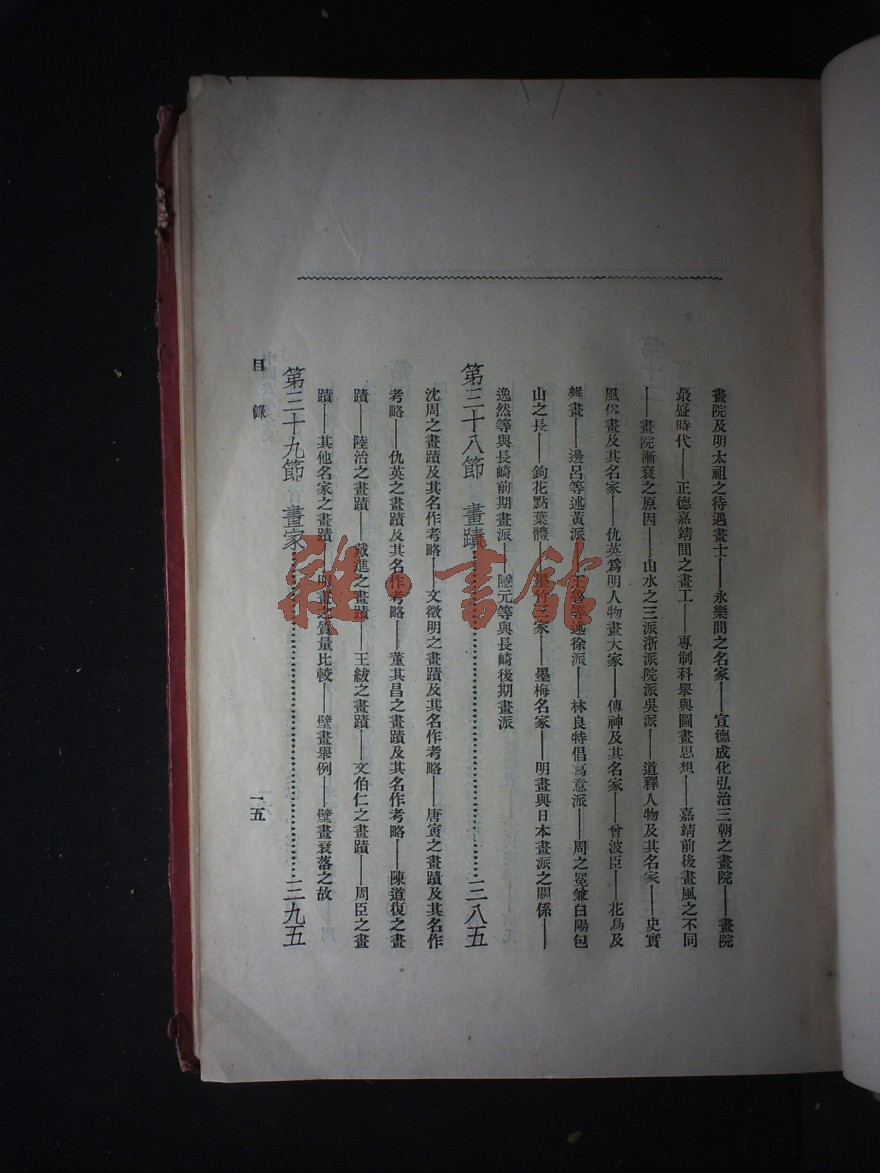 畫院及明太祖之待遇畫士——永樂間之名家——宣德成化弘治三朝之畫院——畫院
最盛時代——正德嘉靖間之畫工——專制科舉與圖畫思想——嘉靖前後畫風之不同
——畫院漸衰之原因——山水之三派浙派院派吳派——道釋人物及其名家——史實
風俗畫及其名家——仇英爲明人物畫大家——傳神及其名家——曾波臣——花鳥及
雜畫——邊呂等述黃派——王魯等述徐派——林良特倡寫意派——周之冕兼白陽包
山之長——鉤花點葉體——墨竹三家——墨梅名家——明畫與日本畫派之關係——
逸然等與長崎前期畫派——隱元等與長崎後期畫派
第三十八節 畫蹟……三八五
沈周之畫蹟及其名作考略——文徵明之畫蹟及其名作考略——唐寅之畫蹟及其名作
考略——仇英之畫蹟及其名作考略——董其昌之畫蹟及其名作考略——陳道復之畫
蹟——陸治之畫蹟——戴進之畫蹟——王紱之畫蹟——文伯仁之畫蹟——周臣之畫
蹟——其他名家之畫蹟——明畫之質量比較——壁畫舉例——壁畫衰落之故
第三十九節 畫家……三九五
目錄
一五
雜·書館